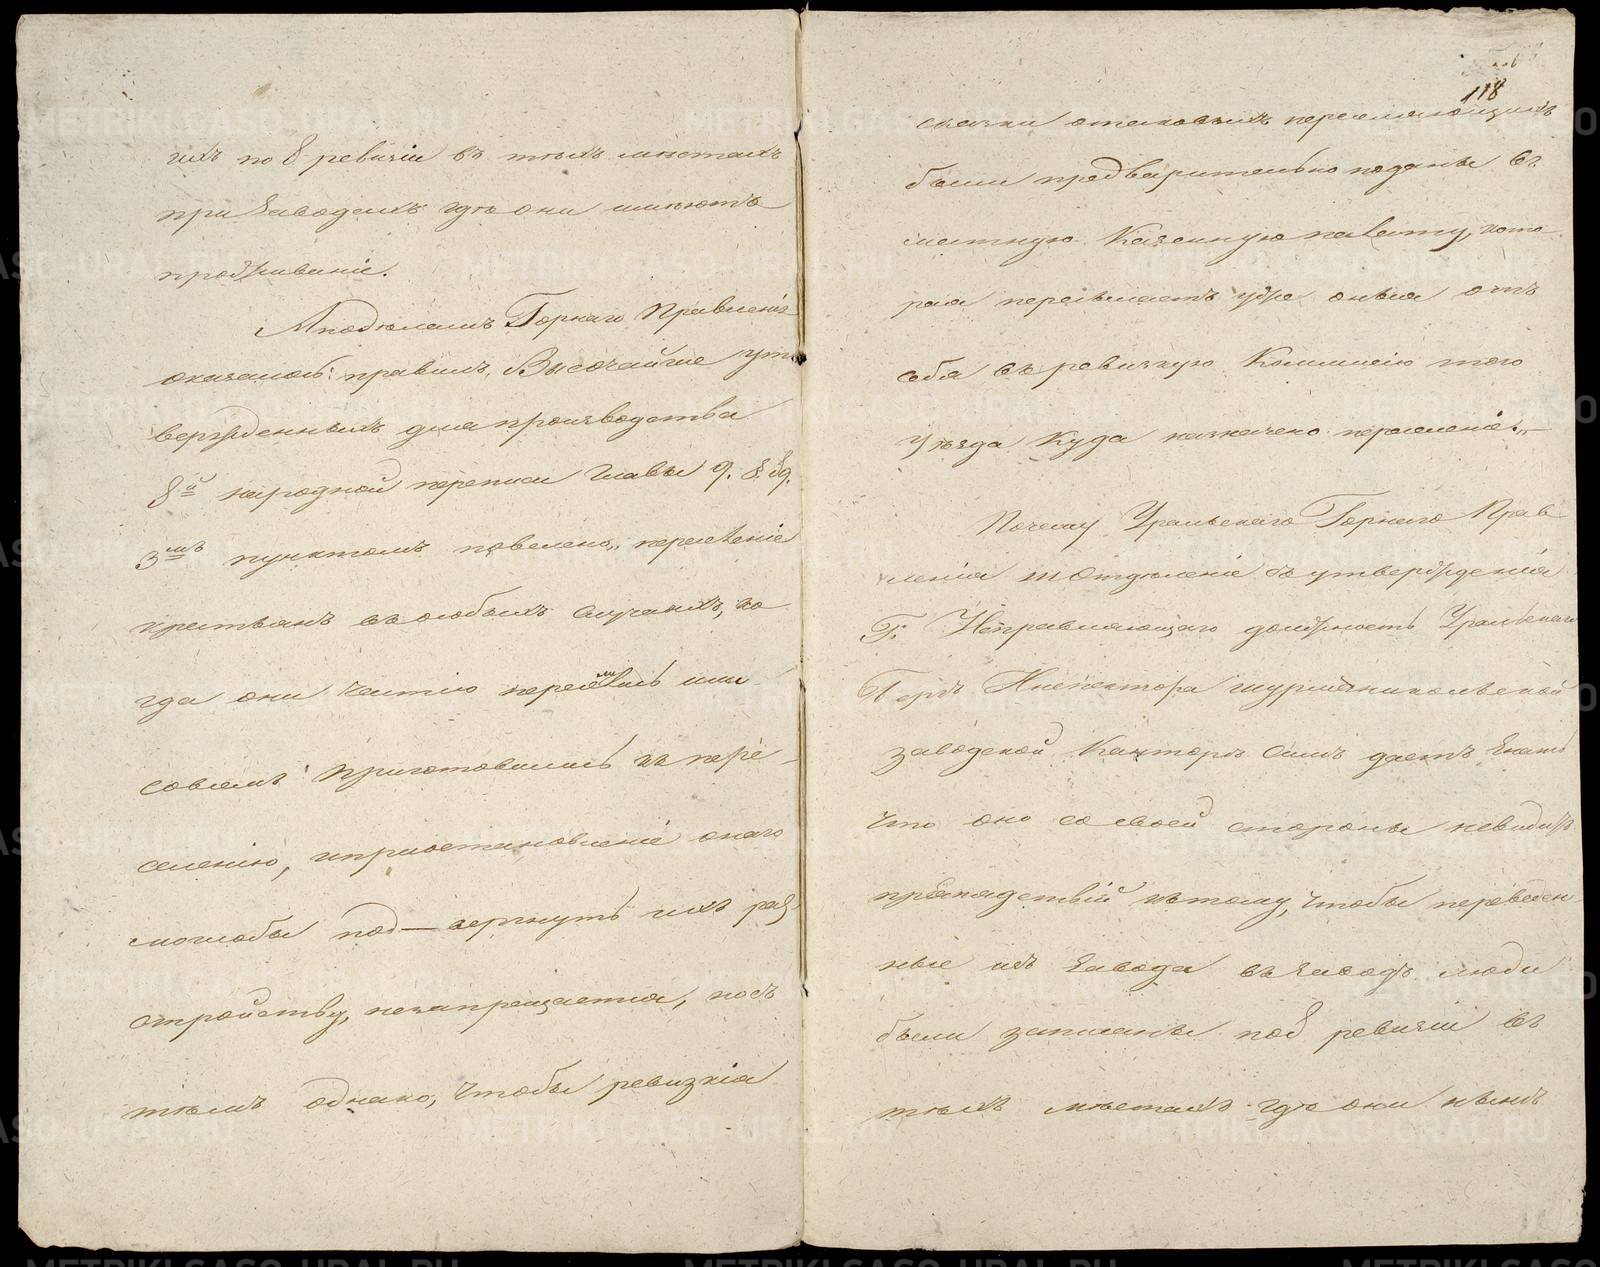 ихъ по 8 ревизіи въ тѣхъ мѣстахъ
при заводахъ гдѣ они имѣютъ
проживаніе.
А по дѣламъ Горнаго Правленія
оказалось: правилъ, Высочайше ут
вержденныхъ для производства
8й народной переписи главы 9. § 89.
3мъ пунктомъ повелено „переселеніе
крестьянъ въ особыхъ случаяхъ, ко
гда они частію переселились или
совсемъ приготовились къ пере
селенію, и приостановленіе онаго
моглобы под—вергнуть ихъ раз
стройству, незапрещается, посъ
тѣмъ однако, чтобы ревизкія
118
сказки отаковыхъ переселяющихъ
были предварительно поданы въ
местную Казенную палату, кото
рая пересылаетъ уже оныя отъ
себя въ ревизкую Коммисію того
уѣзда куда назначено переселеніе.„—
Почему Уральскаго Горнаго Прав
ленія III Отдѣленіе съ утвержденія
Г. Исправляющаго должность Уральскаго
Берг Инспектора Шурманикольской
заводской Канторѣ симъ даетъ знать
что оно со своей стороны невидитъ
препядствій къ тому, чтобы переведен
ные изъ завода въ заводъ люди
были записаны по 8 ревизіи въ
тѣхъ мѣстахъ гдѣ они нынѣ
METRIKI.GASO-URAL.RU